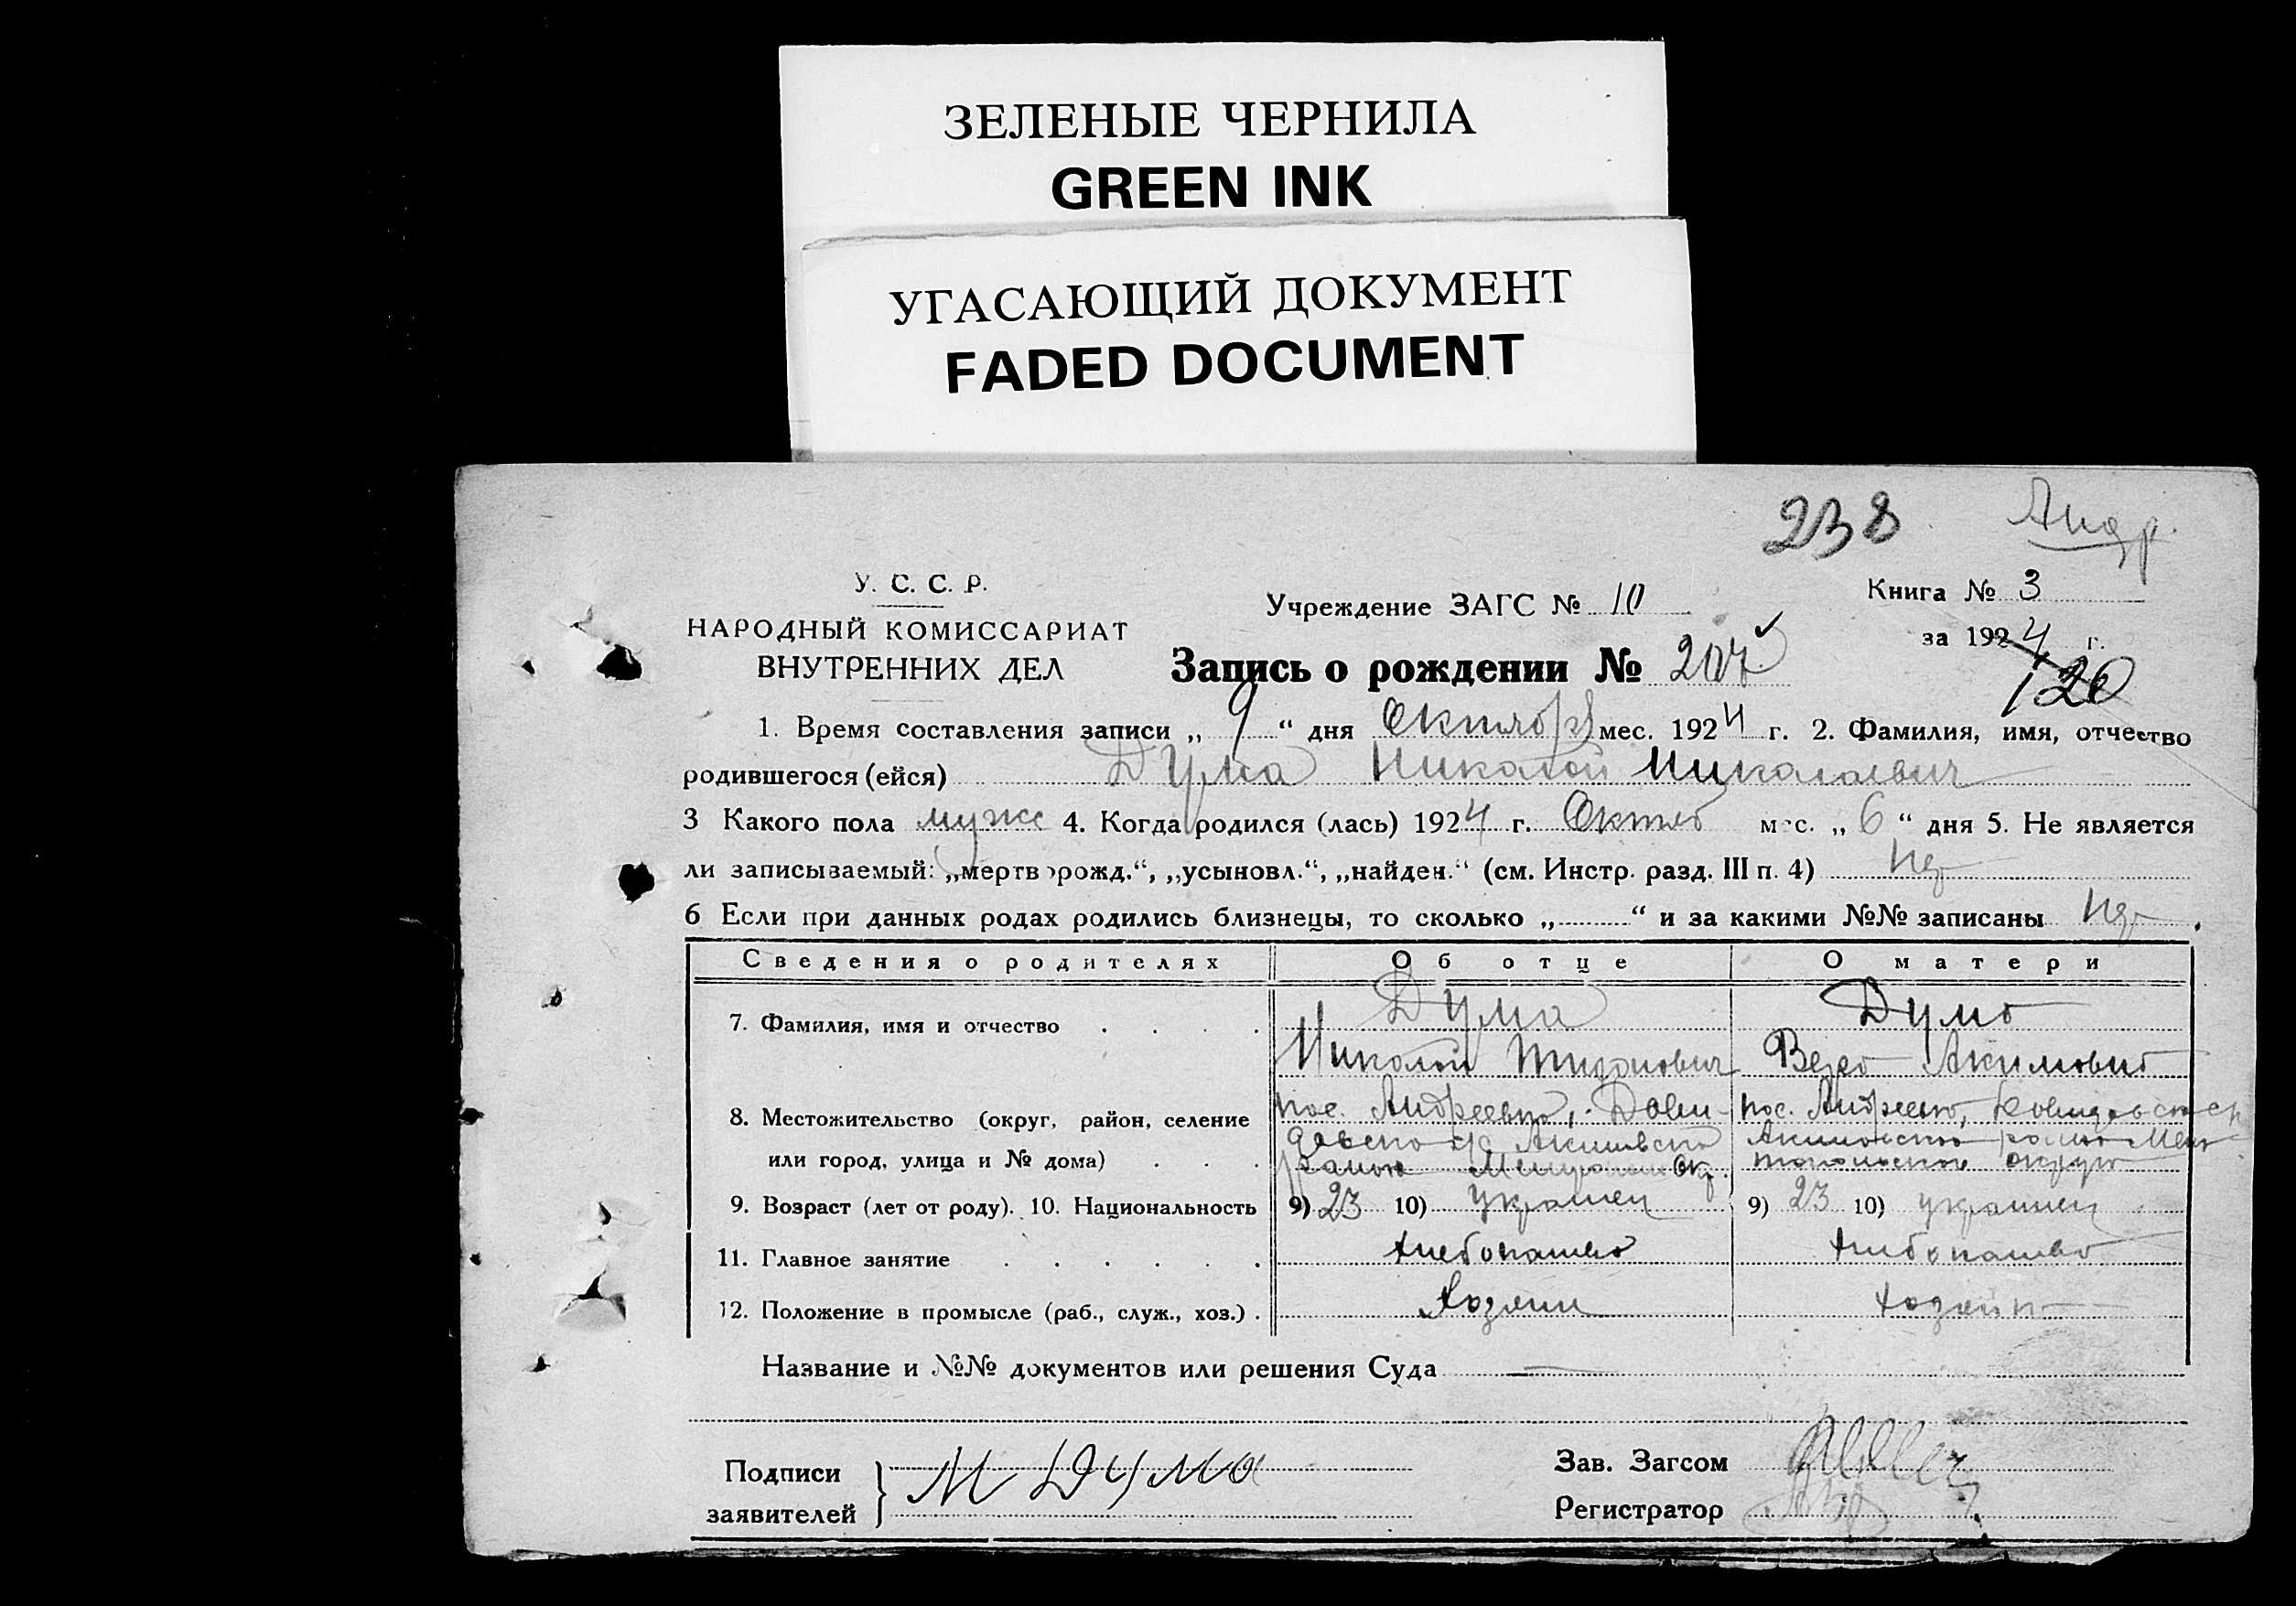 ЗЕЛЕНЫЕ ЧЕРНИЛА
GREEN INK
УГАСАЮЩИЙ ДОКУМЕНТ
FADED DOCUMENT
238 Андр.
У. С. С. Р.
НАРОДНЫЙ КОМИССАРИАТ
ВНУТРЕННИХ ДЕЛ
Учреждение ЗАГС № 10
Книга № 3
за 1924 г.
120
Запись о рождении № 207
1. Время составления записи „ 9 “ дня Октября мес. 1924 г. 2. Фамилия, имя, отчество
родившегося (ейся) Дума Николай Николаевич
3 Какого пола мужс 4. Когда родился (лась) 1924 г. Октяб мес. „ 6 “ дня 5. Не является
ли записываемый: „мертворожд.“, „усыновл.“, „найден.“ (см. Инстр. разд. III п. 4)
6 Если при данных родах родились близнецы, то сколько „ “ и за какими №№ записаны
Сведения о родителях Об отце О матери
7. Фамилия, имя и отчество Дума Дума
Николай Вера Акимовна
8. Местожительство (округ, район, селение
или город, улица и № дома)
пос. Андреевка, Дави-
довско с/с Акимовско
район Окр.
пос. Андреевка,
Акимовского района Мели
топольского округа
9. Возраст (лет от роду). 10. Национальность 9) 23 10) украинец 9) 23 10) украинец
11. Главное занятие хлебопашево хлибопашево
12. Положение в промысле (раб., служ., хоз.) Хозяин хозяйн
Название и №№ документов или решения Суда
Подписи
заявителей
Н Дума
Зав. Загсом
Регистратор